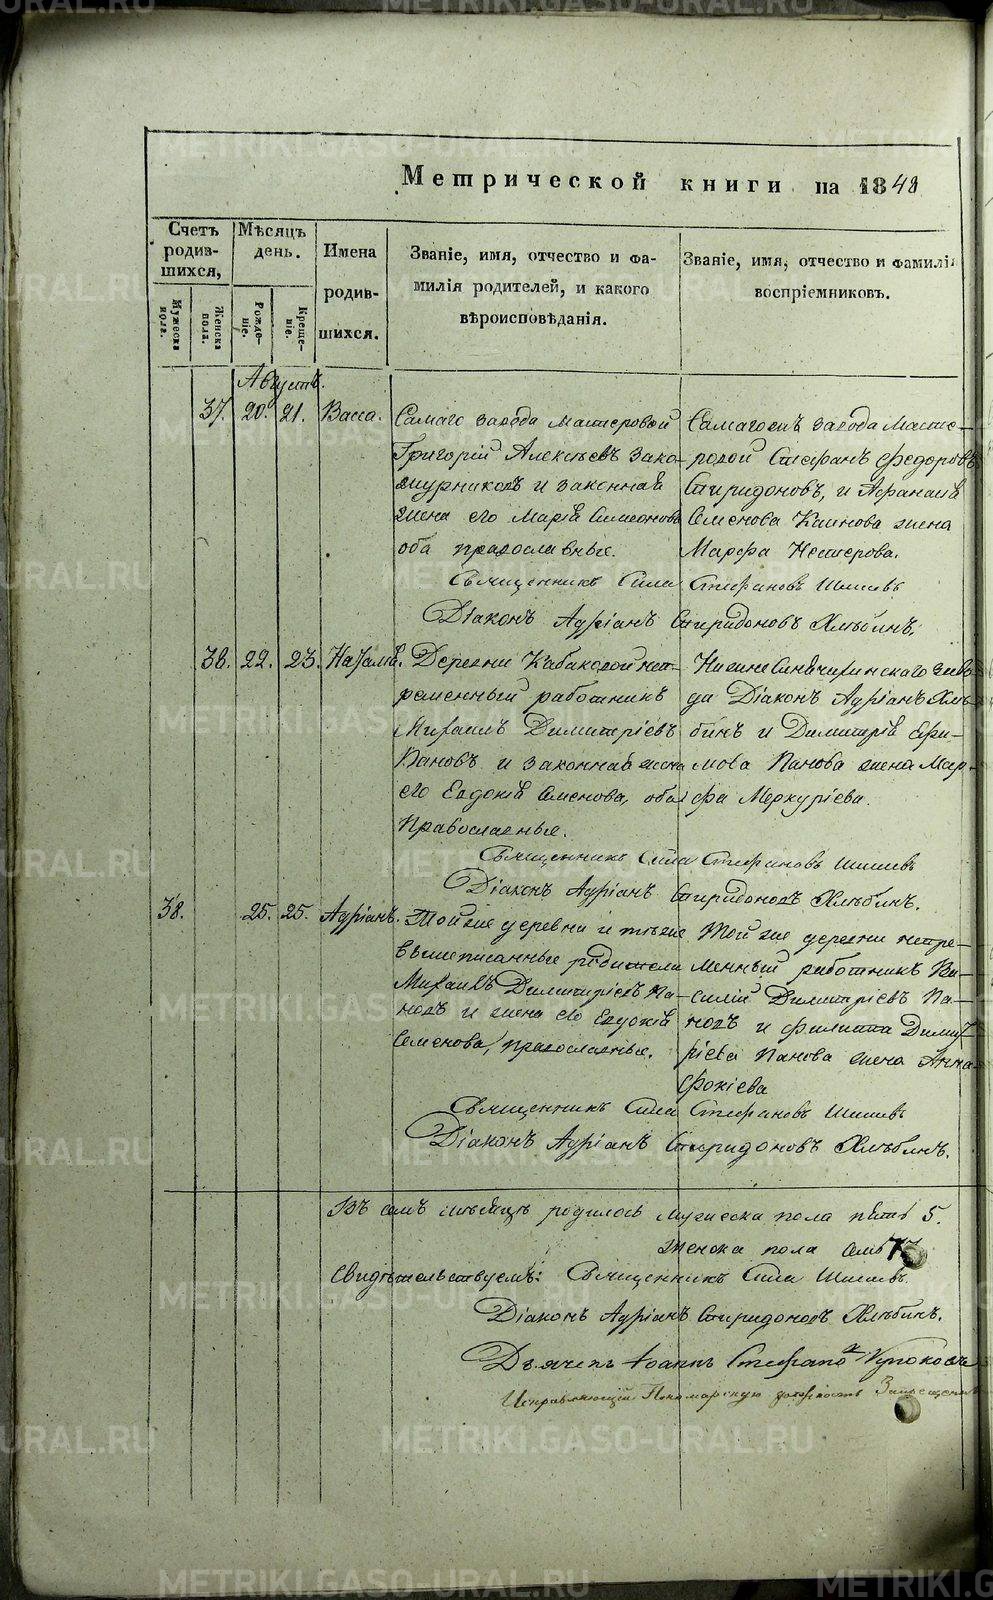 Метрической книги на 1848
Счетъ родив-шихся,
Мѣсяцъ день.
Имена родив-шихся.
Званіе, имя, отчество и фа-
милія родителей, и какого
вѣроисповѣданія.
Званіе, имя, отчество и фамилія
воспріемниковъ.
Мужеска пола.
Женска пола.
Рожде-ніе.
Креще-ніе.
Августъ.
37. 20. 21. Васса.
Самаго завода мастеровой
Григорій Алексѣевъ Зако-
мурниковъ и законная
жена его Марія Симеонова
оба православные.
Самагожъ завода Масте-
ровой Стефанъ Федоровъ
Спиридоновъ, и Афанасія
Семенова Каинова жена
Марфа Нестерова.
Священникъ Сила Стефановъ
Діаконъ Адріанъ Спиридоновъ Хлѣбинъ.
38. 22. 23. Наталія.
Деревни Кабаковой непре-
ременный работникъ
Михаилъ Димитріевъ
Пановъ и законная жена
его Евдокія Семенова, оба
Православные.
Нижне Синячихинскаго заво
да Діаконъ Адріанъ Хлѣ-
бинъ и Димитрія Ефи-
мова Панова жена Мар-
фа Меркуріева.
Священникъ Сила Стефановъ
Діаконъ Адріанъ Спиридоновъ Хлѣбинъ.
38. 25. 25. Адріанъ.
Той же деревни и тѣже
вышеписанные родители
Михаилъ Димитріевъ Па-
новъ и жена его Евдокія
Семенова, православные.
Той же деревни непре-
менный работникъ Ва-
силій Димитріевъ Па-
новъ и Филиппа Димит
ріева Панова жена Анна
Фокіева
Священникъ Сила Стефановъ
Діаконъ Адріанъ Спиридоновъ Хлѣбинъ.
Въ семъ мѣсяцѣ родилось мужеска пола пять 5.
женска пола семь 7
Свидѣтельствуемъ: Священникъ Сила
Діаконъ Адріанъ Спиридоновъ Хлѣбинъ.
Дьячекъ Іоаннъ Стефановъ
Исправляющій Пономарскую должность
METRIKI.GASO-URAL.RU